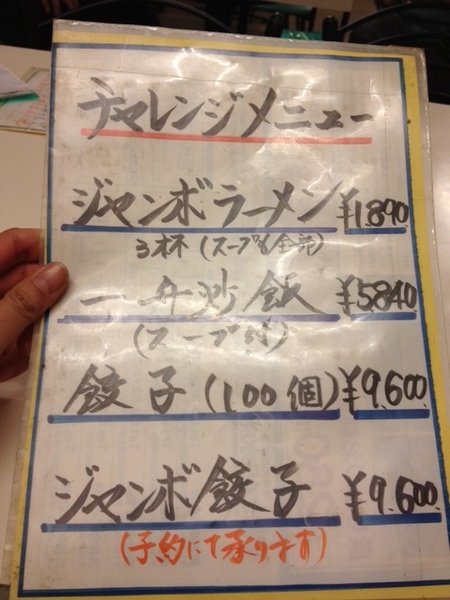 チャレンジメニュー
ジャンボラーメン ¥1.890
3杯 (スープも全部)
一升炒飯 ¥5840
(スープ付)
餃子 (100個) ¥9.600
ジャンボ餃子 ¥9.600
(予約にて承ります)